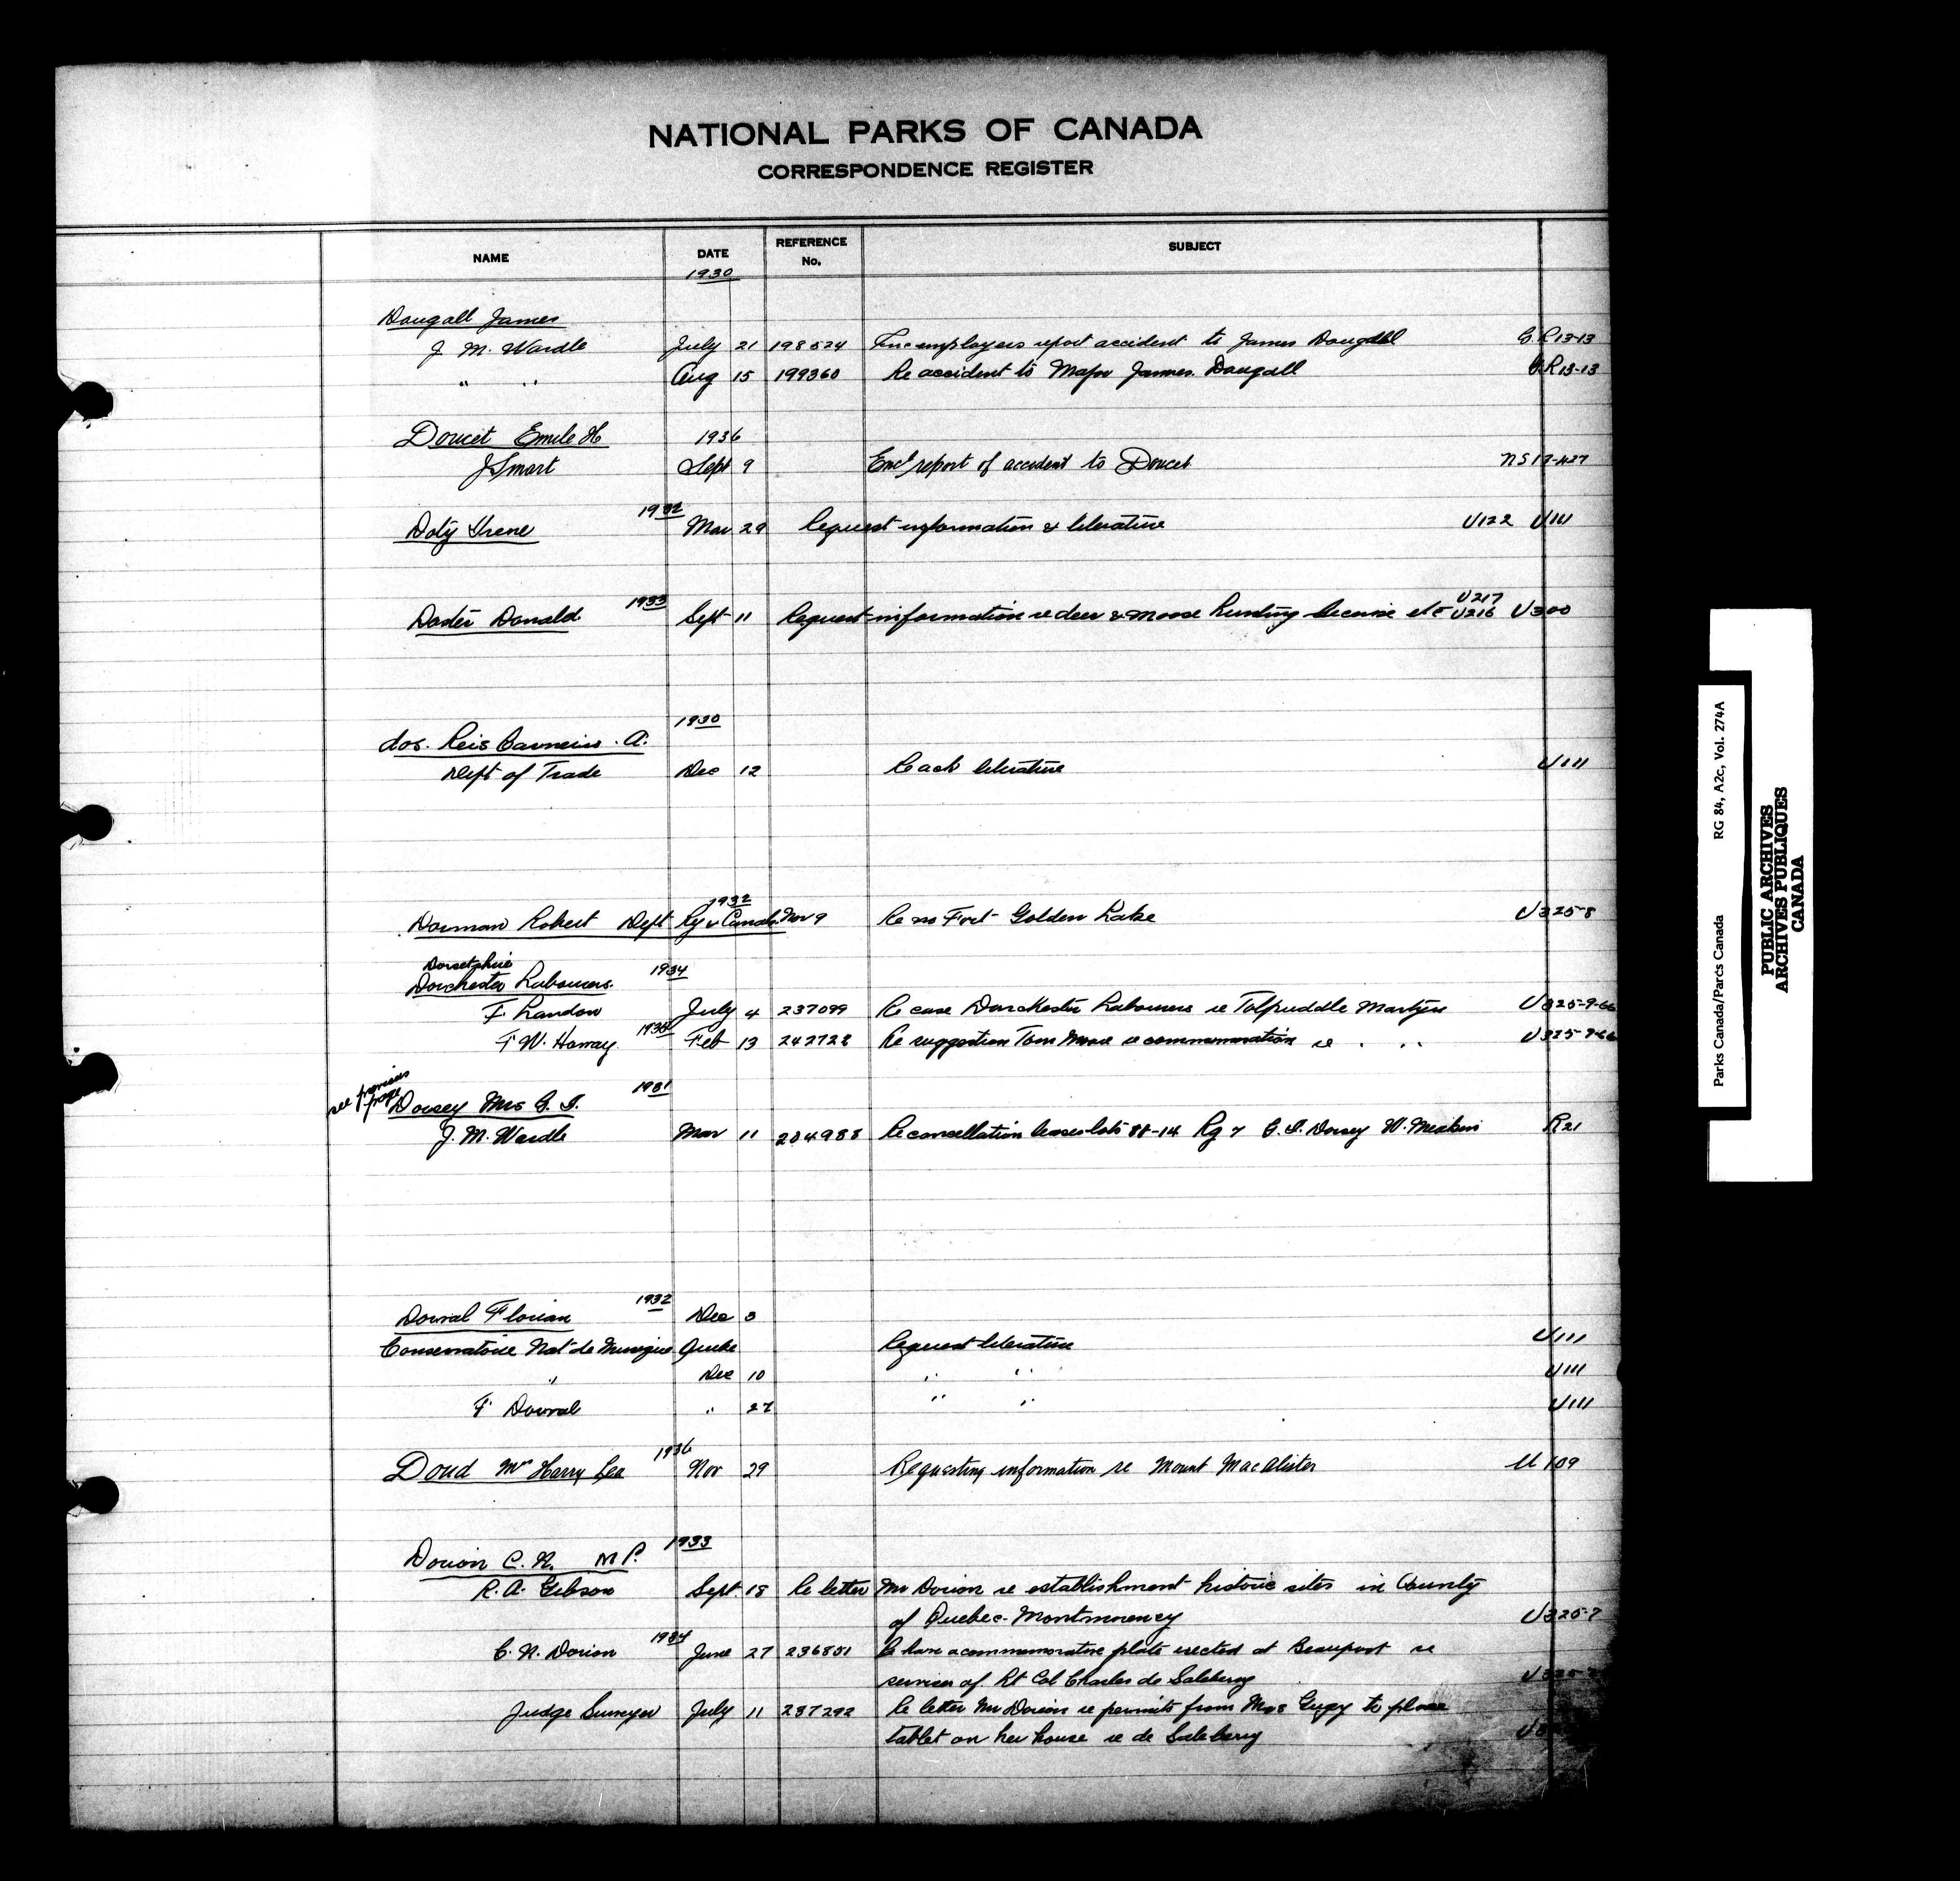 NATIONAL PARKS OF CANADA
CORRESPONDENCE REGISTER
NAME DATE REFERENCE No. SUBJECT
1930
Dougall James
J. M. Wardle July 21 198524 Enc employers report accident to James Dougall G.R13-13
" " Aug 15 199360 Re accident to Major James Dougall G.R13-13
Doucet Emile H 1936
J Smart Sept 9 Encl report of accident to Doucet NS13-427
Doty Irene 1932 Mar 29 Request information & literature U122 U111
Doster Donald 1933 Sept 11 Request information re deer & moose hunting license etc U217 U216 U300
dos. Reis Carneiro. A. 1930
Dept of Trade Dec 12 Re ack literature U111
Dorman Robert Dept Ry & Canals 1932 Nov 9 Re Fort Golden Lake U325-8
Dorsetshire
Dorchester Labourers 1934
F. Landon July 4 237099 Re case Dorchester Labourers re Tolpuddle Martyrs U325-9-66
F. W. Howay 1935 Feb 13 242722 Re suggestion Tom Moore re commemoration re " " U325-9-66
see previous page
Dorsey Mrs G. I. 1931
J. M. Wardle Mar 11 204988 Re cancellation leases lots -14 G. I. Dorsey W. Meakin R21
Dorval Florian 1932 Dec 3
Conservatoire Nat' de Musique Quebec Request literature U111
" Dec 10 " " U111
F Dorval " 27 " " U111
Doud Mr Harry Lee 1936 Nov 29 Requesting information re Mount MacAlister U109
Dorion C. N. M P. 1933
R. A. Gibson Sept. 18 Re letter Mr Dorion re establishment historic sites in County
of Quebec-Montmorency U325-7
C. N. Dorion 1934 June 27 236801 To have a commemorative plate erected at Beauport re
services of Lt Col Charles de Salaberry
Judge Surveyer July 11 237292 Re letter Mr Dorion re permits from Mrs Gugy to place
tablet on her house re de Salaberry
Parks Canada/Parcs Canada RG 84, A2c, Vol. 274A
PUBLIC ARCHIVES
ARCHIVES PUBLIQUES
CANADA